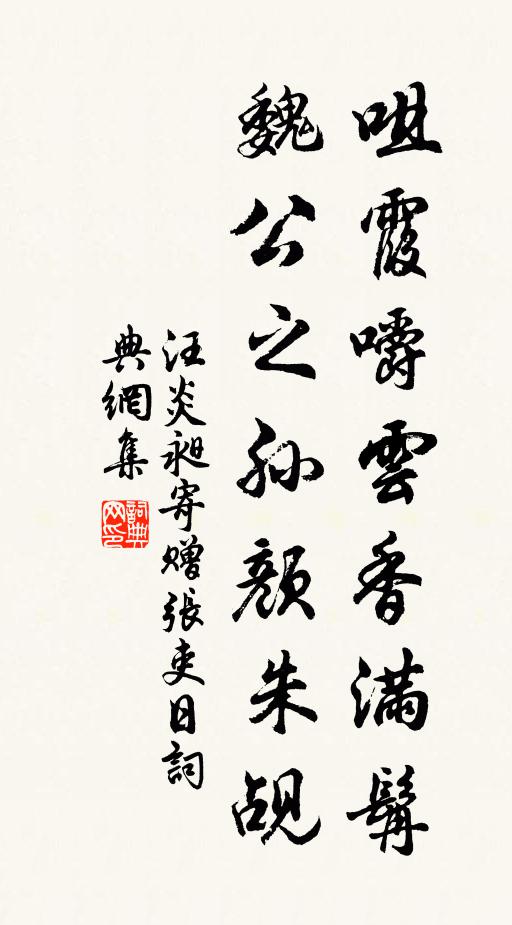 咀霞嚼雲香滿髯
魏公之孙顏朱觇
汪炎昶寄贈張吏日詞
典網集
詞典
网印